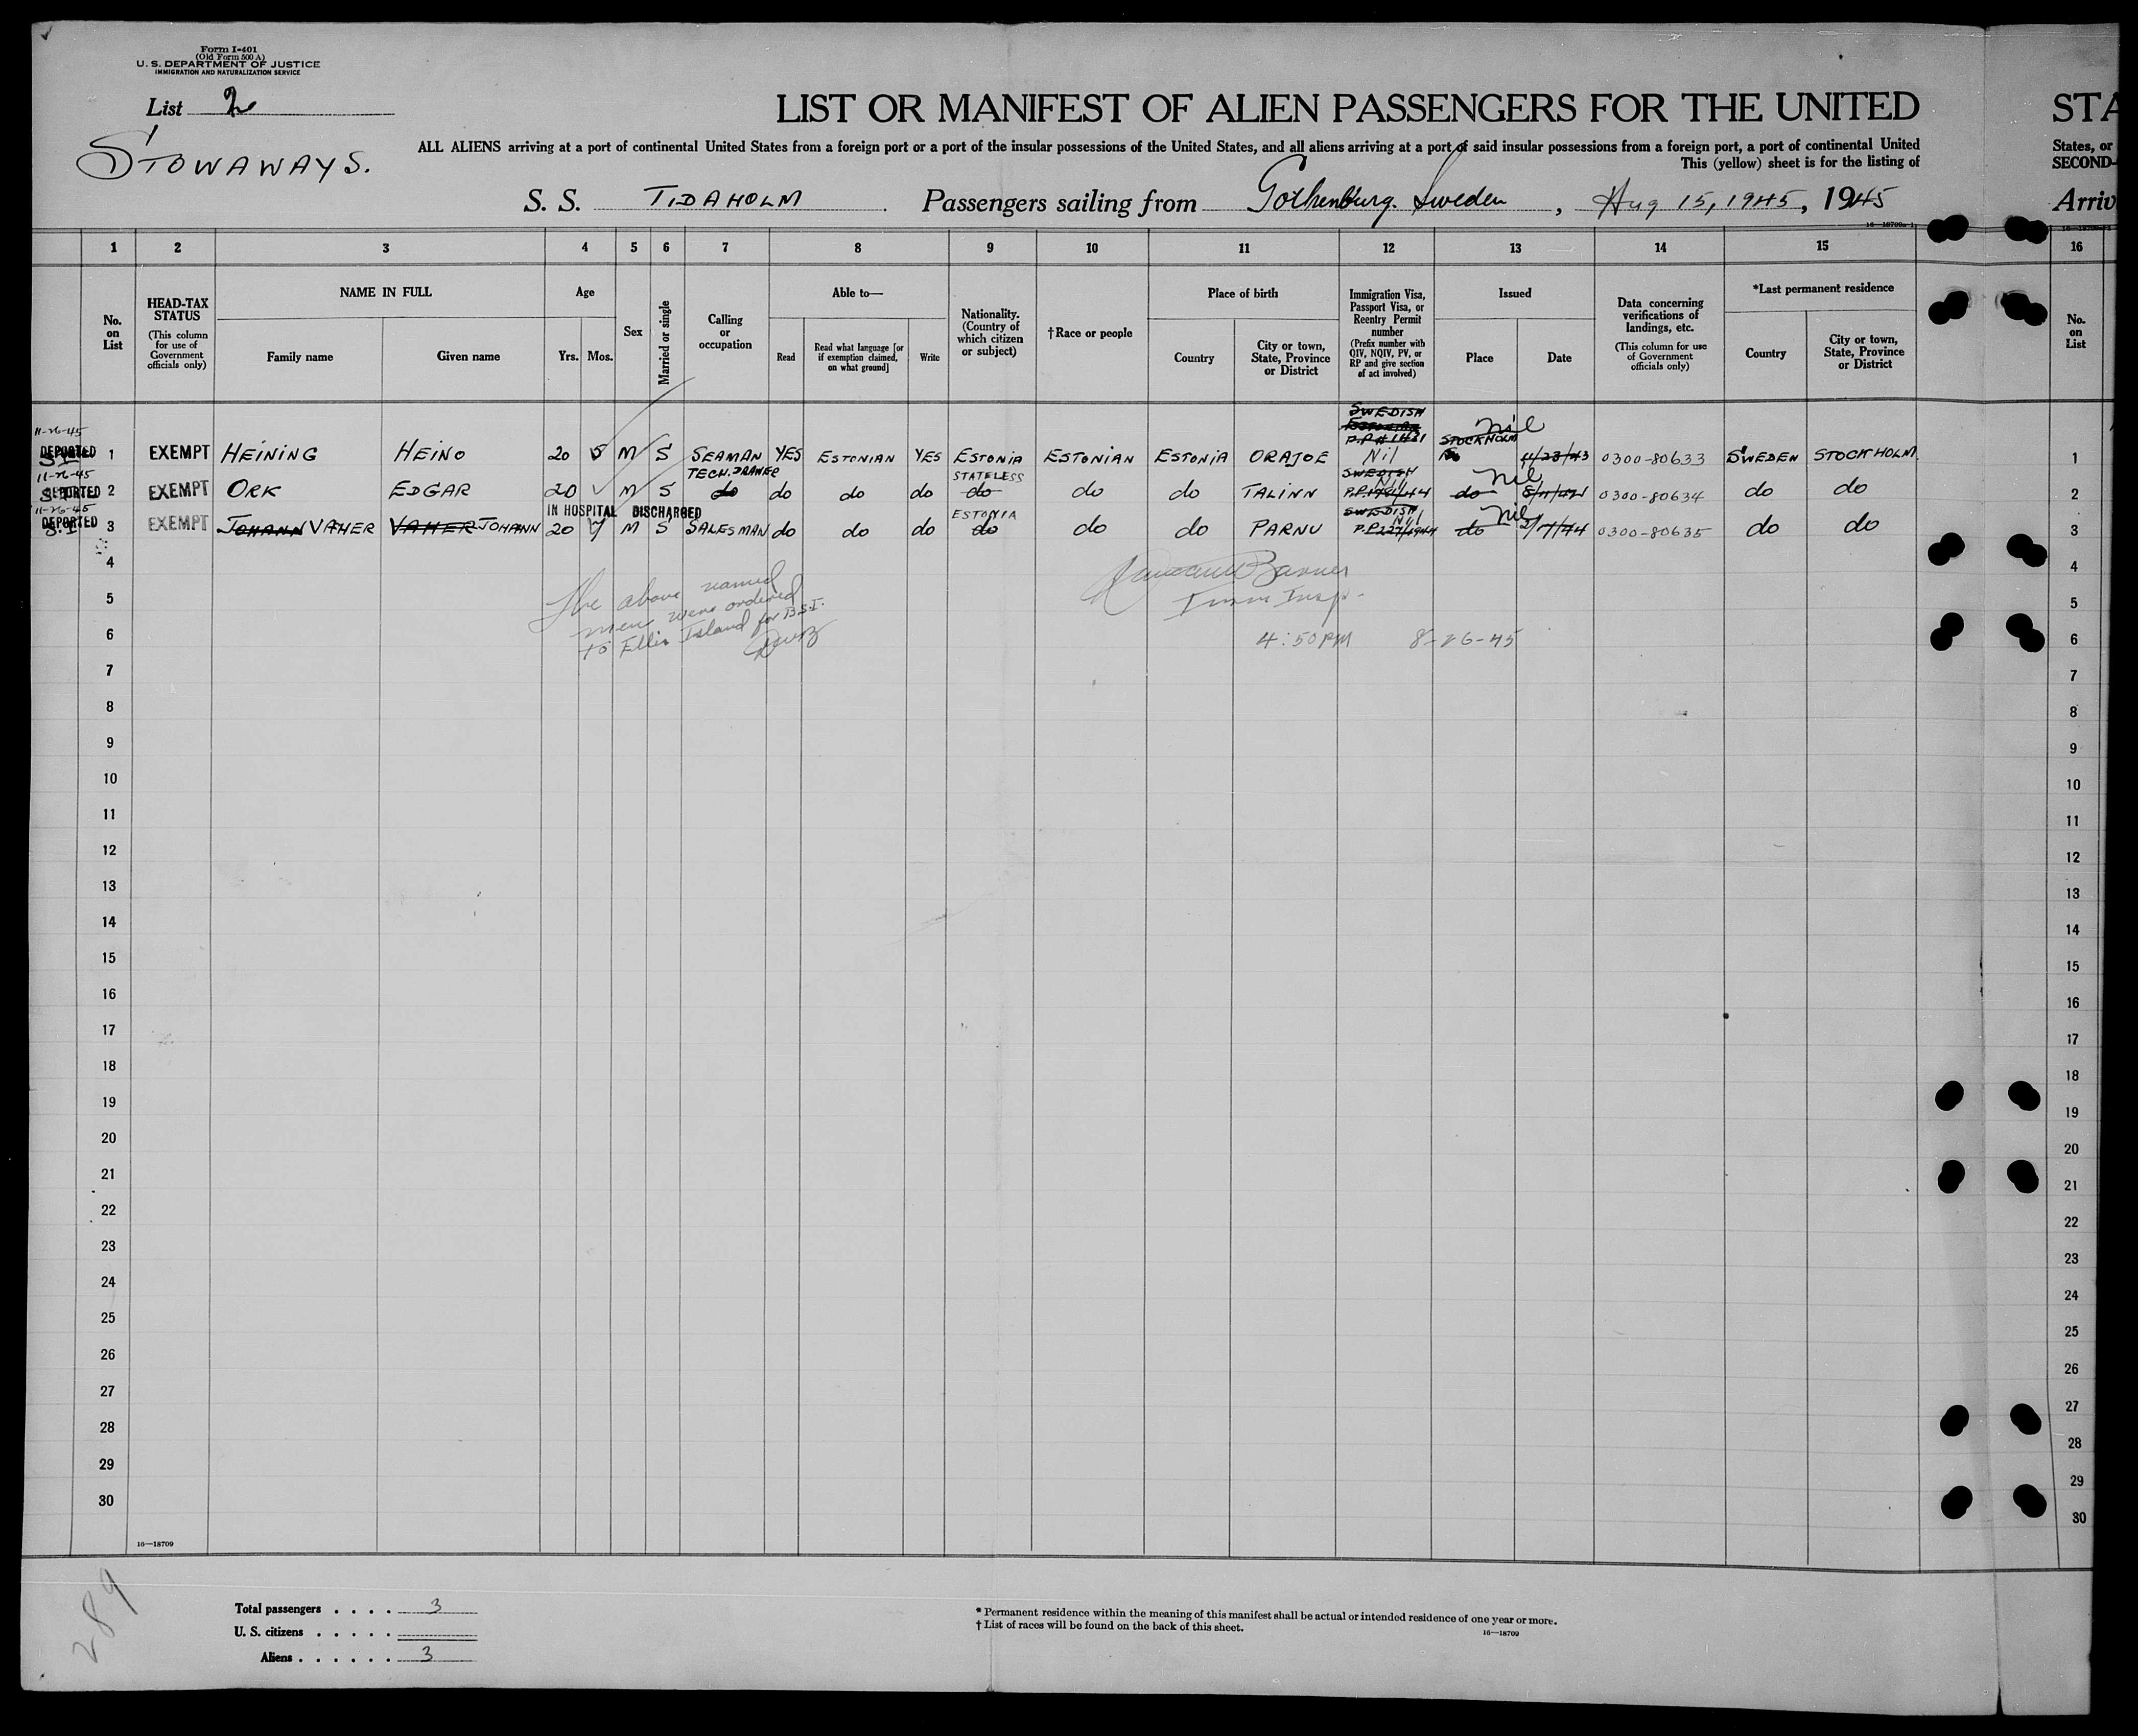 Form I-401
(Old Form 500 A)
U. S. DEPARTMENT OF JUSTICE
IMMIGRATION AND NATURALIZATION SERVICE
List 2
STOWAWAYS.
LIST OR MANIFEST OF ALIEN PASSENGERS FOR THE UNITED STA
ALL ALIENS arriving at a port of continental United States from a foreign port or a port of the insular possessions of the United States, and all aliens arriving at a port of said insular possessions from a foreign port, a port of continental United States, or
This (yellow) sheet is for the listing of SECOND-
S. S. TIDAHOLM Passengers sailing from Gothenburg. Sweden, Aug 15, 1945, 1945 Arriv
1 2 3 4 5 6 7 8 9 10 11 12 13 14 15 16
No. on List
HEAD-TAX STATUS (This column for use of Government officials only)
NAME IN FULL
Family name Given name
Age
Yrs. Mos.
Sex
Married or single
Calling or occupation
Able to—
Read Read what language [or if exemption claimed, on what ground] Write
Nationality. (Country of which citizen or subject)
†Race or people
Place of birth
Country City or town, State, Province or District
Immigration Visa, Passport Visa, or Reentry Permit number (Prefix number with QIV, NQIV, PV, or RP and give section of act involved)
Issued
Place Date
Data concerning verifications of landings, etc. (This column for use of Government officials only)
*Last permanent residence
Country City or town, State, Province or District
No. on List
11-26-45
DEPORTED 1 EXEMPT HEINING HEINO 20 5 M S SEAMAN YES ESTONIAN YES ESTONIA ESTONIAN ESTONIA ORAJOE SWEDISH Nil STOCKHOLM nil 11/23/43 0300-80633 SWEDEN STOCKHOLM. 1
11-26-45
DEPORTED 2 EXEMPT ORK EDGAR 20 M S TECH. DRAWER do do do do STATELESS do do do TALINN SWEDISH Nil do nil 0300-80634 do do 2
IN HOSPITAL DISCHARGED
11-26-45
DEPORTED S.I. 3 EXEMPT JOHANN VAHER VAHER JOHANN 20 7 M S SALESMAN do do do ESTONIA do do do PARNU SWEDISH Nil P.P.227/1944 do nil 0300-80635 do do 3
4 4
The above named
men were ordered
to Ellis Island for B.S.I.
Imm Insp.
4:50 PM 8-26-45
5 5
6 6
7 7
8 8
9 9
10 10
11 11
12 12
13 13
14 14
15 15
16 16
17 17
18 18
19 19
20 20
21 21
22 22
23 23
24 24
25 25
26 26
27 27
28 28
29 29
30 30
16—18709
289
Total passengers . . . . 3
U. S. citizens . . . . .
Aliens . . . . . . 3
* Permanent residence within the meaning of this manifest shall be actual or intended residence of one year or more.
† List of races will be found on the back of this sheet.
16—18709